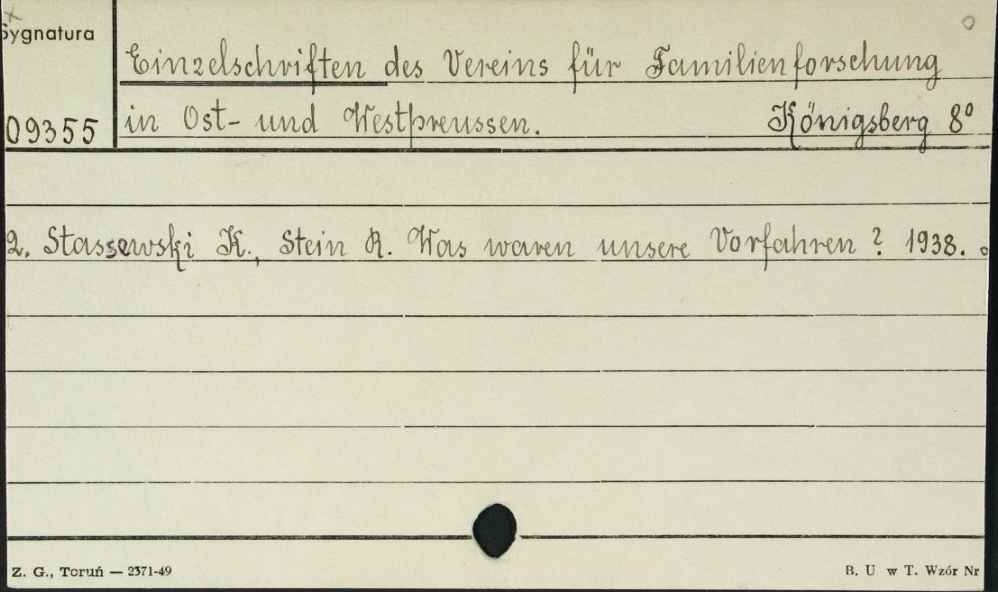 Sygnatura
Einzelschriften des Vereins für Familienforschung
09355 in Ost- und Westpreussen. Königsberg 8°
2. Stassewski K., Stein R. Was waren unsere Vorfahren? 1938.
Z. G., Toruń — 2371-49 B. U w T. Wzór Nr